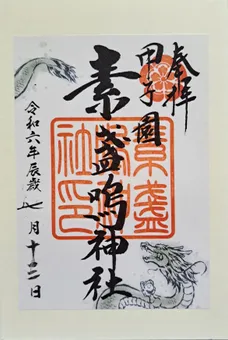 奉拝
甲子園
素盞嗚神社
素盞
嗚神
社印
令和六年辰歳
七月十二日